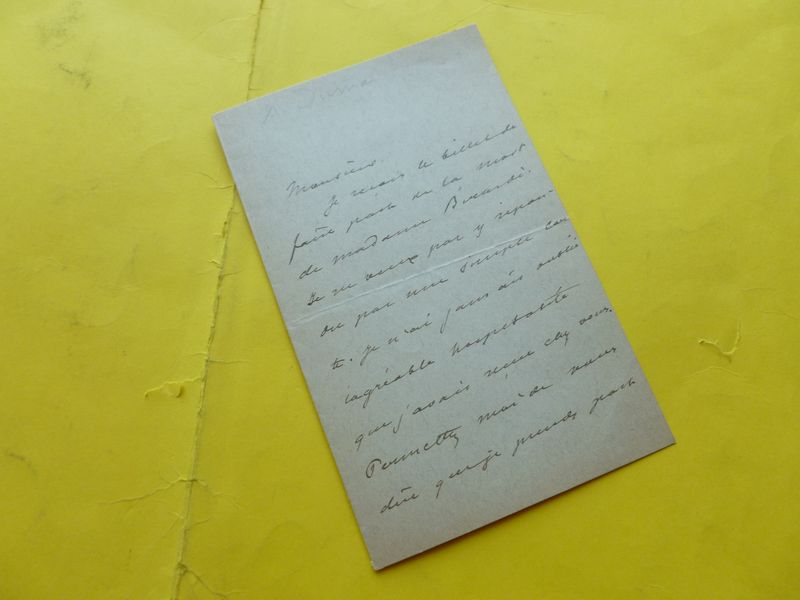 Monsieur.
Je reçois le billet de
faire part de la mort
de madame Bérardi.
Je ne veux pas y répon-
dre par une simple car
te. Je n'ai jamais oublié
l'agréable hospitalité
que j'avais reçue chez vous.
Permettez moi de vous
dire que je prends part